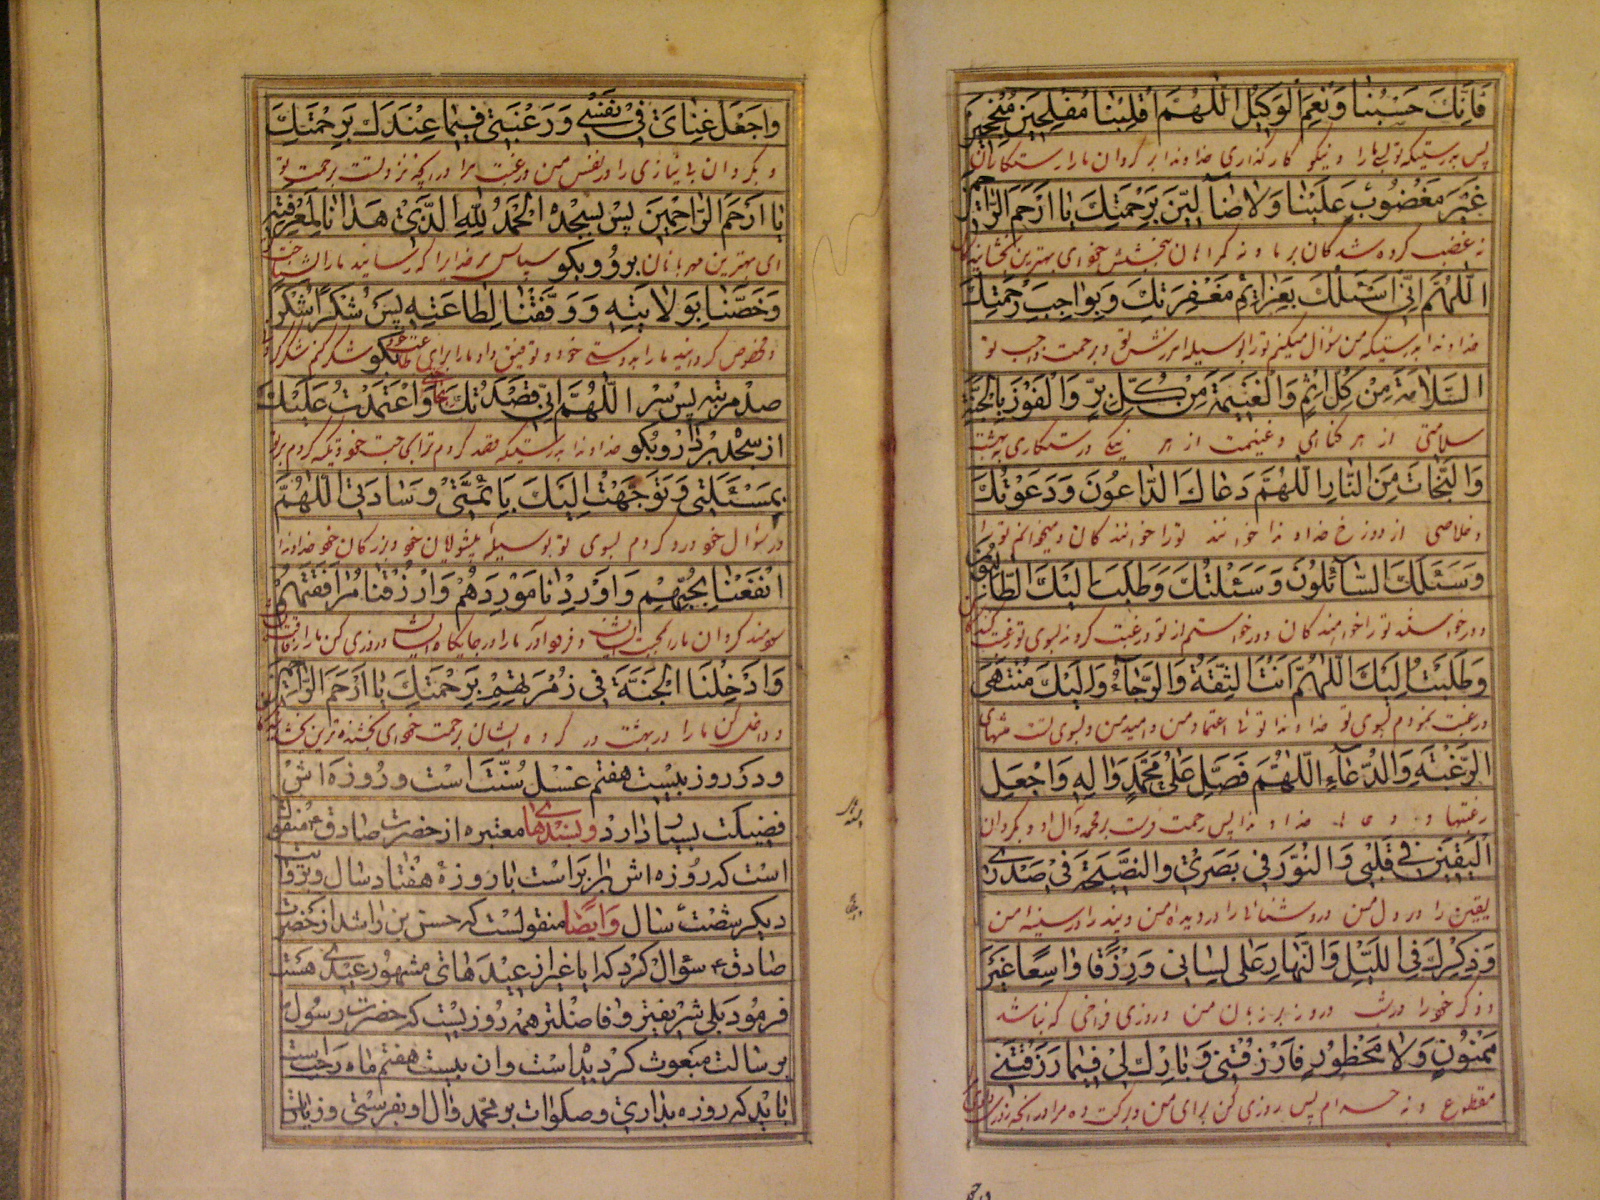 فَاِنَّكَ حَسْبُنا وَنِعْمَ الْوَكیلُ اَللّهُمَّ اقْلِبْنا مُفْلِحینَ مُنْجِحینَ
پس بدرستیکه تو بسی ما را و نیکو کارگذاری خداوندا برگردان ما را رستگاران
غَیْرَ مَغْضُوبٍ عَلَیْنا وَلا ضآلّینَ بِرَحْمَتِكَ یا اَرْحَمَ الرّاحِمینَ
نه غضب کرده شدگان بر ما و نه گمراهان ببخشش خود ای بهترین بخشایندگان
اَللّهُمَّ اِنّی اَسْئَلُكَ بِعَزائِمِ مَغْفِرَتِكَ وَبِواجِبِ رَحْمَتِكَ
خداوندا بدرستیکه من سؤال میکنم تو را بوسیله آمرزش تو و برحمت واجب تو
السَّلامَةَ مِنْ كُلِّ اِثْمٍ وَالْغَنیمَةَ مِنْ كُلِّ بِرٍّ وَالْفَوْزَ بِالْجَنَّةِ
سلامتی از هر گناهی و غنیمت از هر نیکی و رستگاری ببهشت
وَالنَّجاتَ مِنَ النّارِ اَللّهُمَّ دَعاكَ الدّاعُونَ وَدَعَوْتُكَ
و خلاصی از دوزخ خداوندا خوانند تو را خوانندگان و میخوانم تو را
وَسَئَلَكَ السّآئِلُونَ وَسَئَلْتُكَ وَطَلَبَ اِلَیْكَ الطّالِبُونَ
و درخواستند تو را خواهندگان و درخواستم از تو و رغبت کردند بسوی تو رغبت کنندگان
وَطَلَبْتُ اِلَیْكَ اَللّهُمَّ اَنْتَ الثِّقَةُ وَالرَّجآءُ وَاِلَیْكَ مُنْتَهَی
و رغبت نمودم بسوی تو خداوندا تو ئی اعتماد من و امید من و بسوی تست منتهای
الرَّغْبَةِ وَالدُّعآءِ اَللّهُمَّ فَصَلِّ عَلی مُحَمَّدٍ وَالِهِ وَاجْعَلِ
رغبتها و دعاها خداوندا پس رحمت فرست بر محمد و آل او و بگردان
الْیَقینَ فی قَلْبی وَالنُّورَ فی بَصَری وَالنَّصیحَةَ فی صَدْری
یقین را در دل من و روشنائی را در دیده من و پند را در سینه من
وَذِكْرَكَ فِی اللَّیْلِ وَالنَّهارِ عَلی لِسانی وَرِزْقًا واسِعًا غَیْرَ
و ذکر خود را در شب و روز بر زبان من و روزی فراخی که نباشد
مَمْنُونٍ وَلا مَحْظُورٍ فَارْزُقْنی وَبارِكْ لی فیما رَزَقْتَنی
مقطوع و نه حرام پس روزی کن برای من و برکت ده مرا در آنچه روزی
وَاجْعَلْ غِنایَ فی نَفْسی وَرَغْبَتی فیما عِنْدَكَ بِرَحْمَتِكَ
و بگردان بی نیازی را در نفس من و رغبت مرا در آنچه نزد تست برحمت تو
یا اَرْحَمَ الرّاحِمینَ پس بسجده اَلْحَمْدُ لِلّهِ الَّذی هَدانا لِمَعْرِفَتِهِ
ای بهترین مهربانان برو و بگو سپاس بر خدایرا که رسانید ما را بشناخت
وَخَصَّنا بِوَلایَتِهِ وَوَفَّقَنا لِطاعَتِهِ پس شُكْرًا شُكْرًا
و مخصوص گردانید ما را بدوستی خود و توفیق داد ما را برای طاعت بگو شکر کنم شکر کردنی
صد مرتبه پس سر اَللّهُمَّ اِنّی قَصَدْتُكَ بِحاجَتی وَاعْتَمَدْتُ عَلَیْكَ
از سجده بردار و بگو خداوندا بدرستیکه قصد کردم ترا بحاجت خود و تکیه کردم بر تو
بِمَسْئَلَتی وَتَوَجَّهْتُ اِلَیْكَ بِاَئِمَّتی وَساداتی اَللّهُمَّ
در سؤال خود و رو کردم بسوی تو بوسیله پیشوایان خود و بزرگان خود خداوندا
انْفَعْنا بِحُبِّهِمْ وَاَوْرِدْنا مَوْرِدَهُمْ وَارْزُقْنا مُرافَقَتَهُمْ
سودمند گردان ما را بمحبت ایشان و فرود آور ما را در جایگاه ایشان و روزی کن ما را رفاقت
وَاَدْخِلْنَا الْجَنَّةَ فی زُمْرَتِهِمْ بِرَحْمَتِكَ یا اَرْحَمَ الرّاحِمینَ
و داخل کن ما را در بهشت در گروه ایشان برحمت خود ای بخشنده ترین بخشایندگان
و در روز بیست هفتم غسل سنّت است و روزه اش
فضیلت بسیار دارد و بسندهای معتبره از حضرت صادق ع منقول
است که روزه اش برابر است با روزهٔ هفتاد سال و بروایت
دیگر شصت سال وایضًا منقولست که حسن بن راشد از حضرت
صادق ع سؤال کرد که ایا غیر از عیدهای مشهور عیدی هست
فرمود بلی شریفتر و فاضلتر همه روزیست که حضرت رسول
برسالت مبعوث گردیداست وان بیست هفتم ماه رجب است
باید که روزه بداری و صلوات بر محمد وال او بفرستی و زیارت